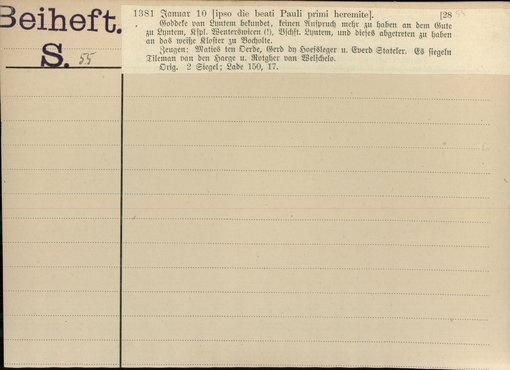 Beiheft.
S. 55
1381 Januar 10 [ipso die beati Pauli primi heremite]. [28
Goddeke van Lyntem bekundet, keinen Anspruch mehr zu haben an dem Gute
zu Lyntem, Kspl. Wenterswicen (!), Bschft. Lyntem, und dieses abgetreten zu haben
an das weiße Kloster zu Bocholte.
Zeugen: Maties ten Oerde, Gerd dy Hoefsleger u. Everd Stateler. Es siegeln
Tileman van den Harge u. Rotgher van Welschelo.
Orig. 2 Siegel; Lade 150, 17.